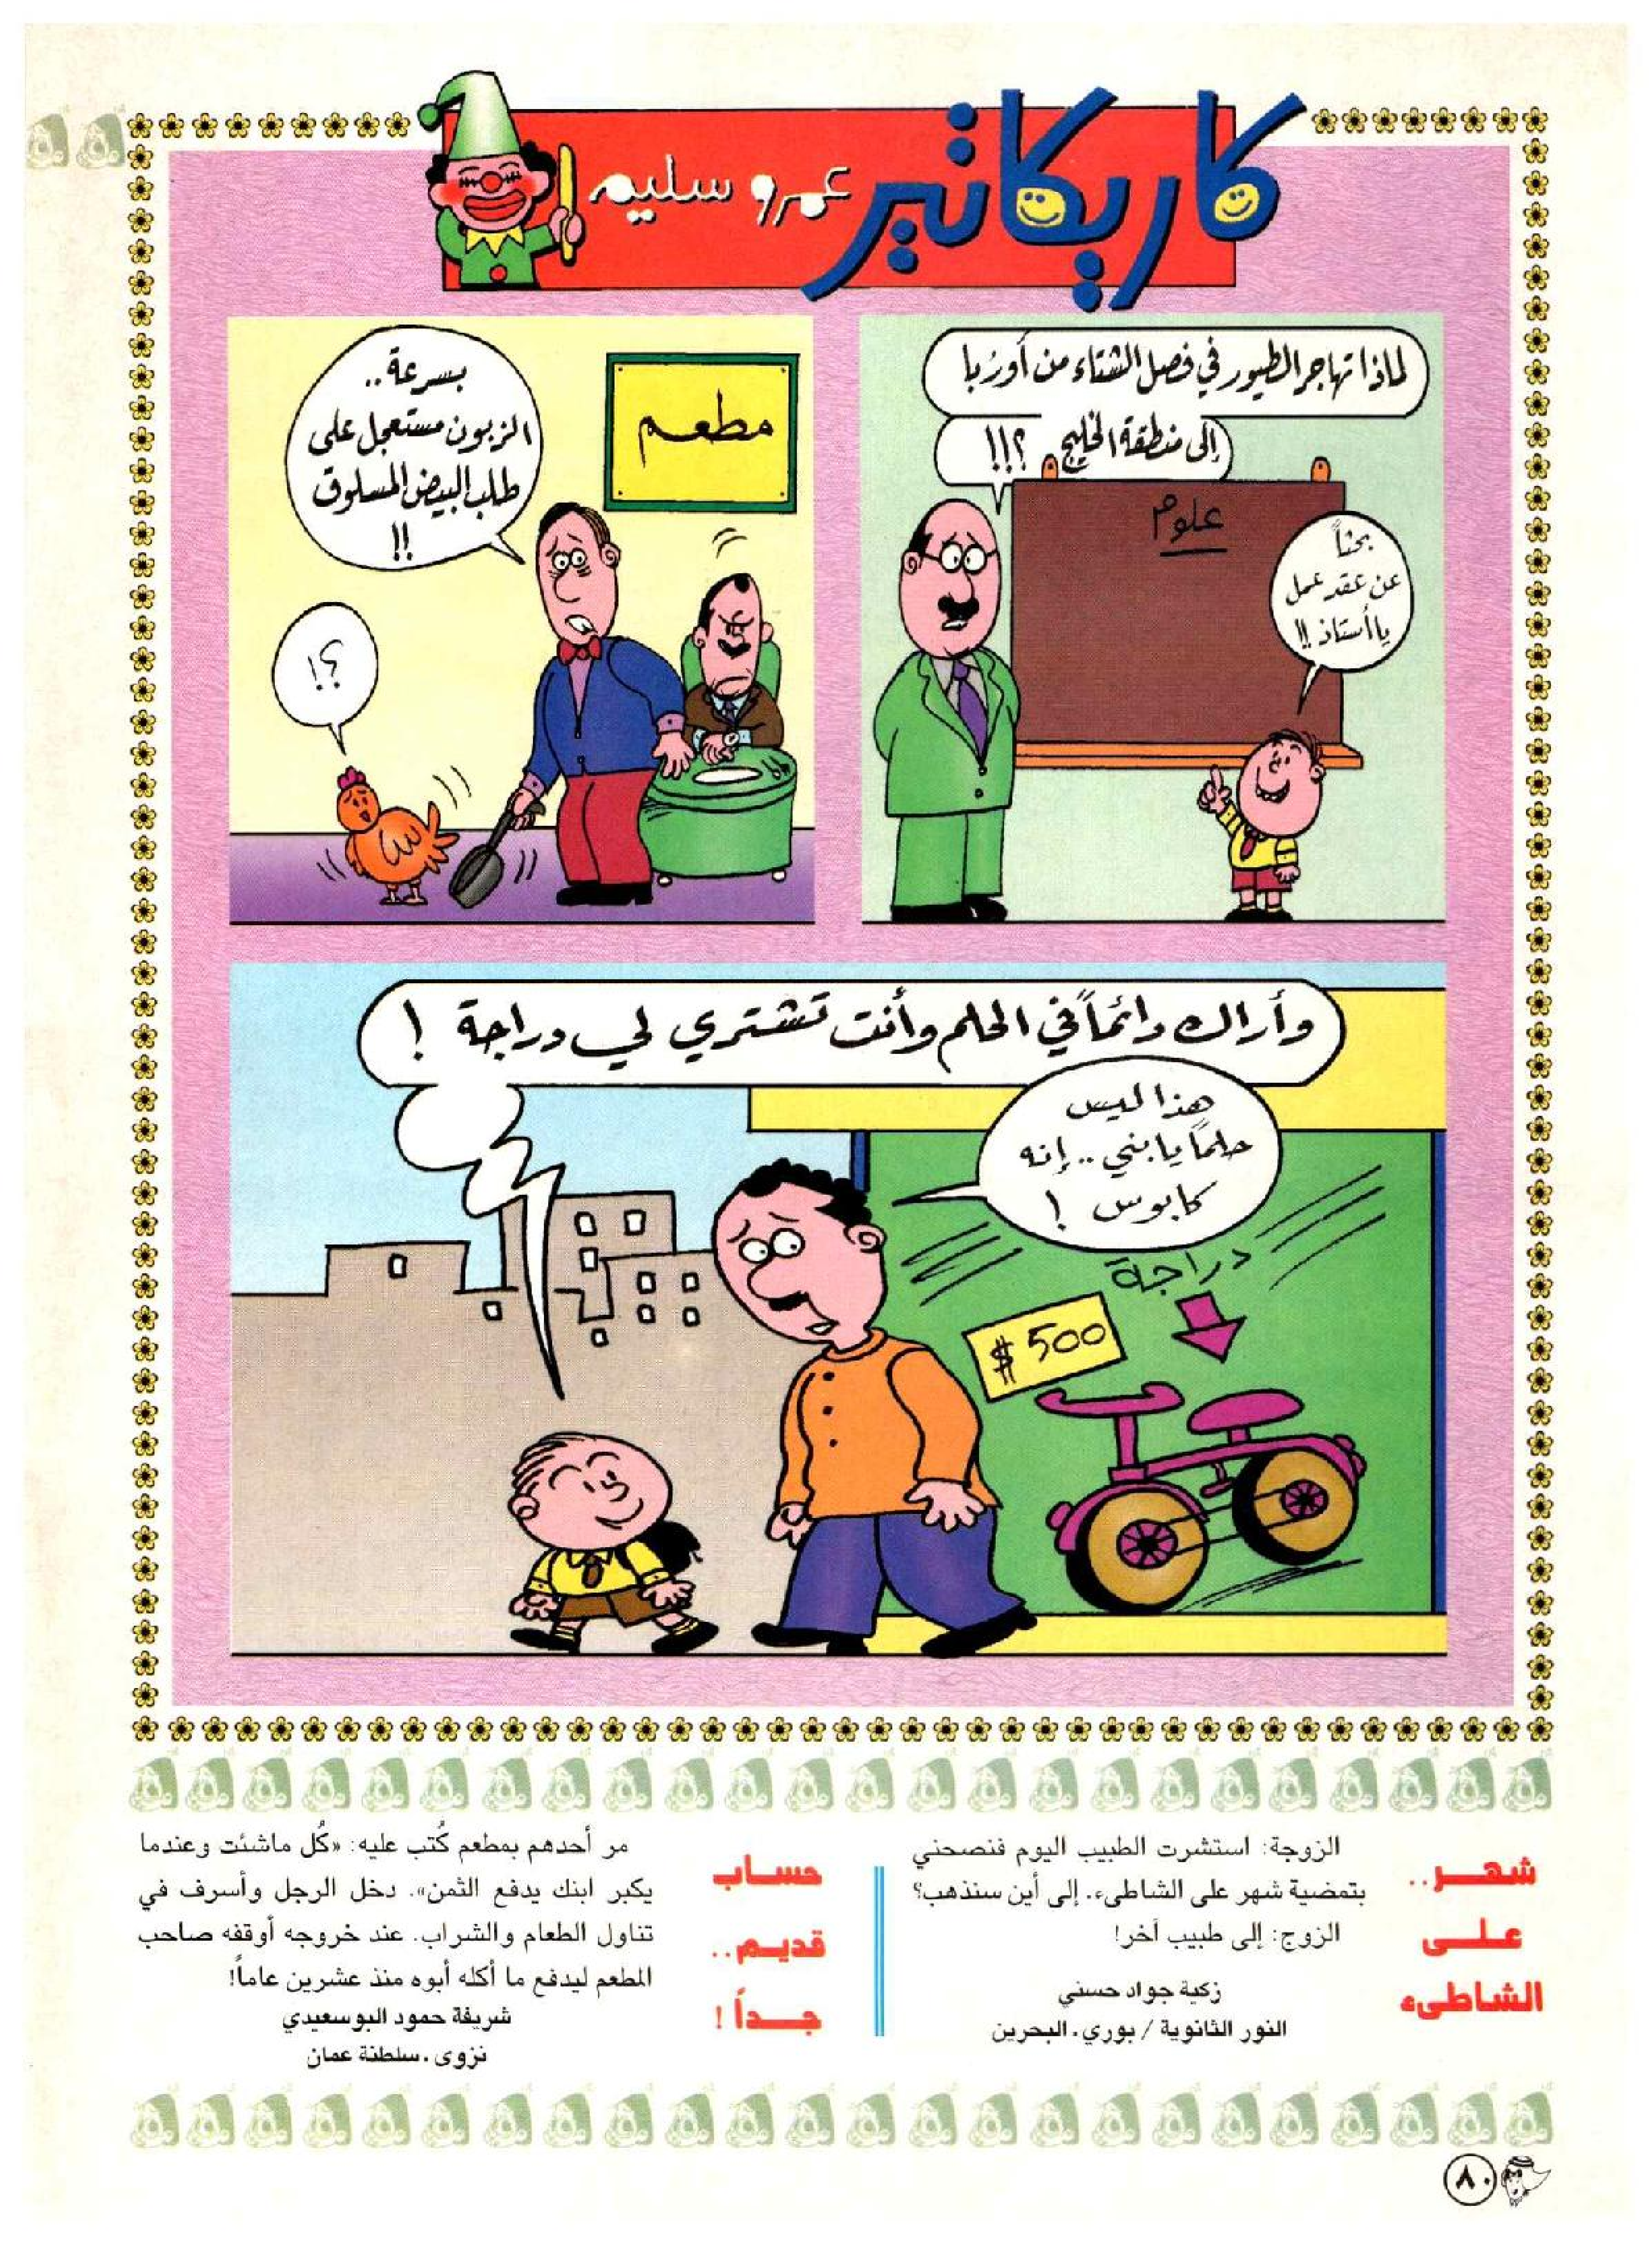 كاريكاتير
عمرو سليم
لماذا تهاجر الطيور في فصل الشتاء من أوربا
إلى منطقة الخليج ؟!!
علوم
بحثاً
عن عقد عمل
يا أستاذ !!
بسرعة..
الزبون مستعجل على
طلب البيض المسلوق
!!
مطعم
؟!
وأراك دائماً في الحلم وأنت تشتري لي دراجة !
هذا ليس
حلماً يا بني .. إنه
كابوس !
دراجة
$ 500
شهر..
على
الشاطىء
الزوجة: استشرت الطبيب اليوم فنصحني
بتمضية شهر على الشاطىء. إلى أين سنذهب؟
الزوج: إلى طبيب آخر!
زكية جواد حسني
النور الثانوية / بوري. البحرين
حساب
قديم..
جداً !
مر أحدهم بمطعم كُتب عليه: «كُل ماشئت وعندما
يكبر ابنك يدفع الثمن». دخل الرجل وأسرف في
تناول الطعام والشراب. عند خروجه أوقفه صاحب
المطعم ليدفع ما أكله أبوه منذ عشرين عاماً!
شريفة حمود البوسعيدي
نزوى. سلطنة عمان
٨٠